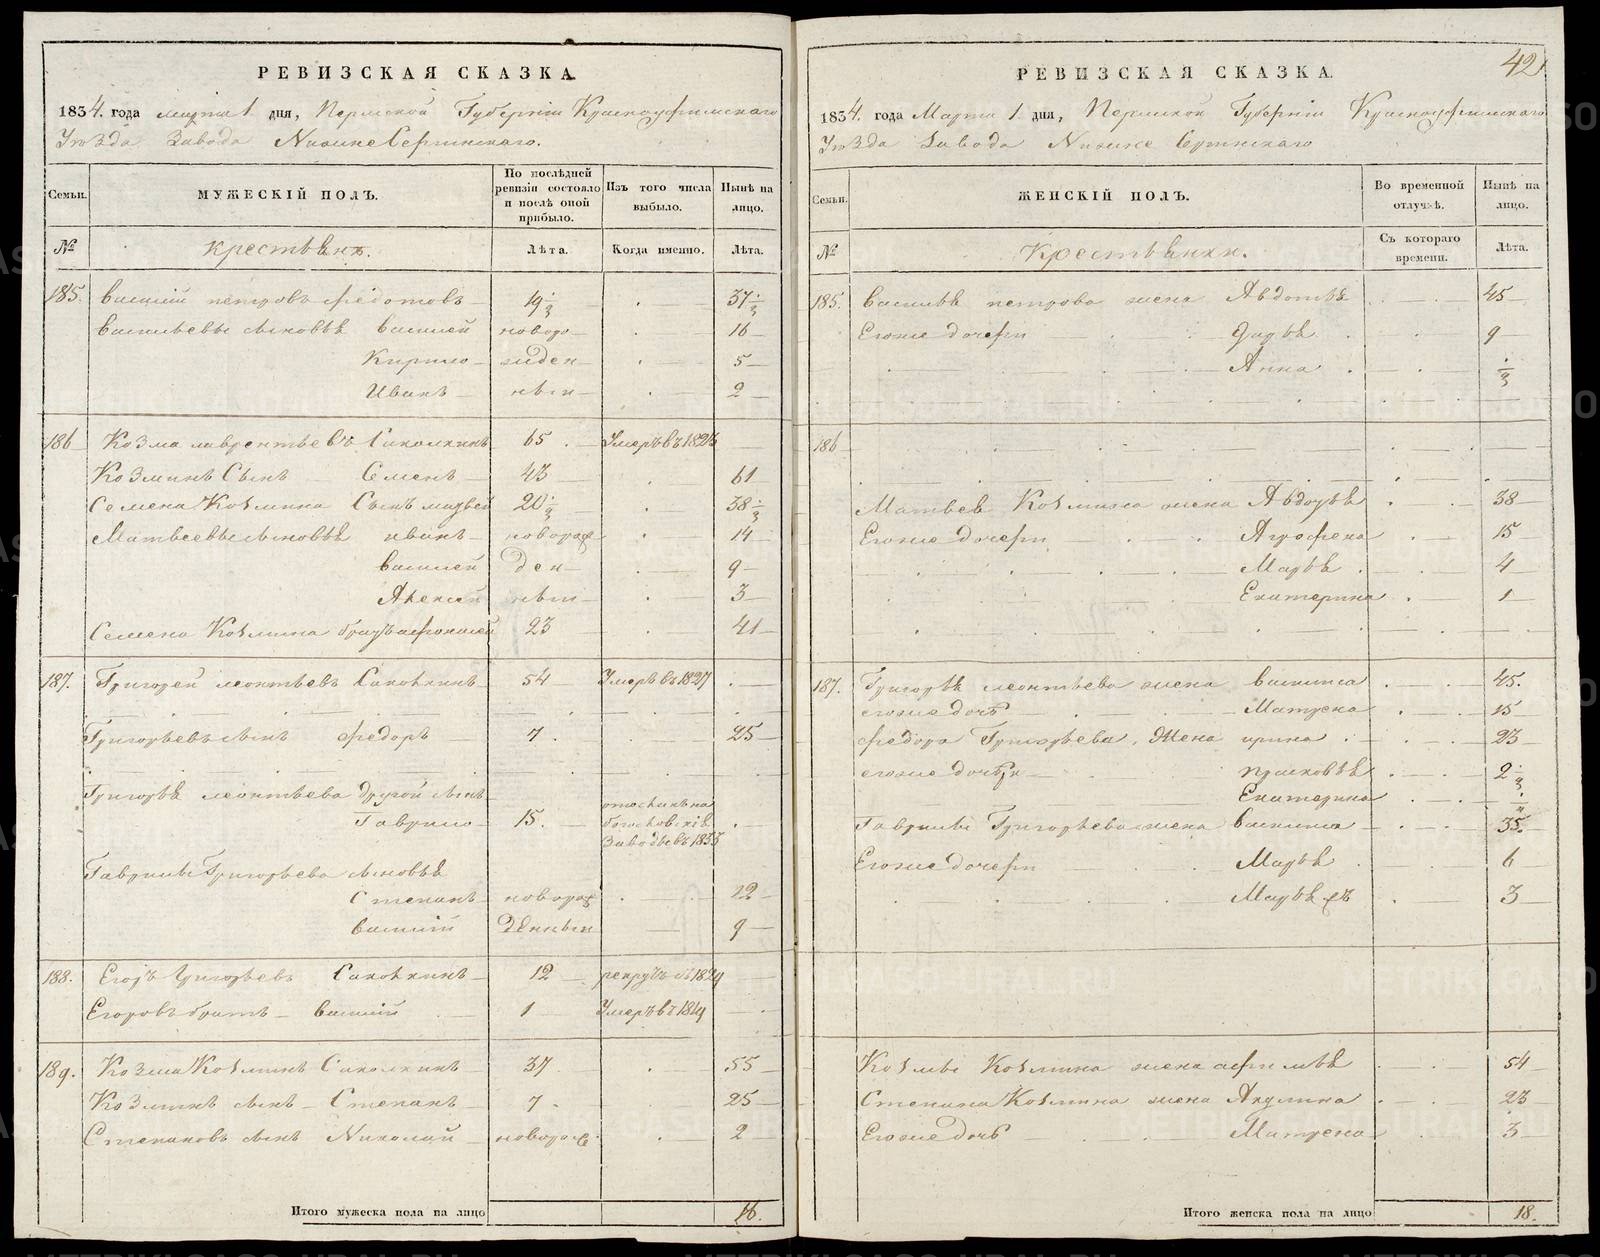 РЕВИЗСКАЯ СКАЗКА
1834. года марта 1 дня, Пермской Губерніи Красноуфимскаго
Уѣзда Завода НижнеСергинскаго.
Семьи.
МУЖЕСКІЙ ПОЛЪ.
По послѣдней ревизіи состояло и послѣ оной прибыло.
Изъ того числа выбыло.
Нынѣ на лицо.
№
крестьянъ.
Лѣта.
Когда именно.
Лѣта.
185. Василій петровъ федотовъ 19 37
Васильевы сыновья Василей новоро 16
Кирило жден 5
Иванъ ныи 2
186 Козма лаврентьевъ 65 Умеръ въ 1825
Козминъ Сынъ Семенъ 43 61
Семена Козмина Сынъ матвей 20 38
Матвеевы сыновья иванъ новорож 14
Василей ден 9
Алексей ныи 3
Семена Козмина братъ афонасей 23 41
187. Григорей леонтьевъ 54 Умеръ въ 1827
Григорьевъ сынъ федоръ 7 25
Григорья леонтьева другой сынъ
Гаврило 15. Заводъ въ 1833
Гаврилы Григорьева сыновья
Степанъ новорож 12
Василій денныи 9
188. Егоръ Григорьевъ 12 рекрутъ с 1829
Егоровъ братъ Василий 1 Умеръ въ 1819
189. Козма Козминъ 37 55
Козминъ сынъ Степанъ 7 25
Степановъ сынъ Николай новорож 2
Итого мужеска пола на лицо 16.
42
РЕВИЗСКАЯ СКАЗКА.
1834. года Марта 1 дня, Пермской Губерніи Красноуфимскаго
Уѣзда Завода Нижне Сергинскаго
Семьи.
ЖЕНСКІЙ ПОЛЪ.
Во временной отлучкѣ.
Нынѣ на лицо.
№
Крестьянки.
Съ котораго времени.
Лѣта.
185. Василья петрова жена Авдотья 45
Егоже дочери Дарья 9
Анна
186
Матвея Козмина жена Авдотья 38
Егоже дочери Агрофена 15
Марья 4
Екатерина 1
187. Григорья леонтьева жена Василиса 45.
егоже дочь Матрена 15
федора Григорьева Жена ирина 23
егоже дочери прасковья 2
Екатерина
Гаврилы Григорьева жена Василиса 35.
Егоже дочери Марья 6
Марья 3
Козмы Козмина жена афимья 54
Степана Козмина жена Акулина 23
Егоже дочь Матрена 3
Итого женска пола на лицо 18.